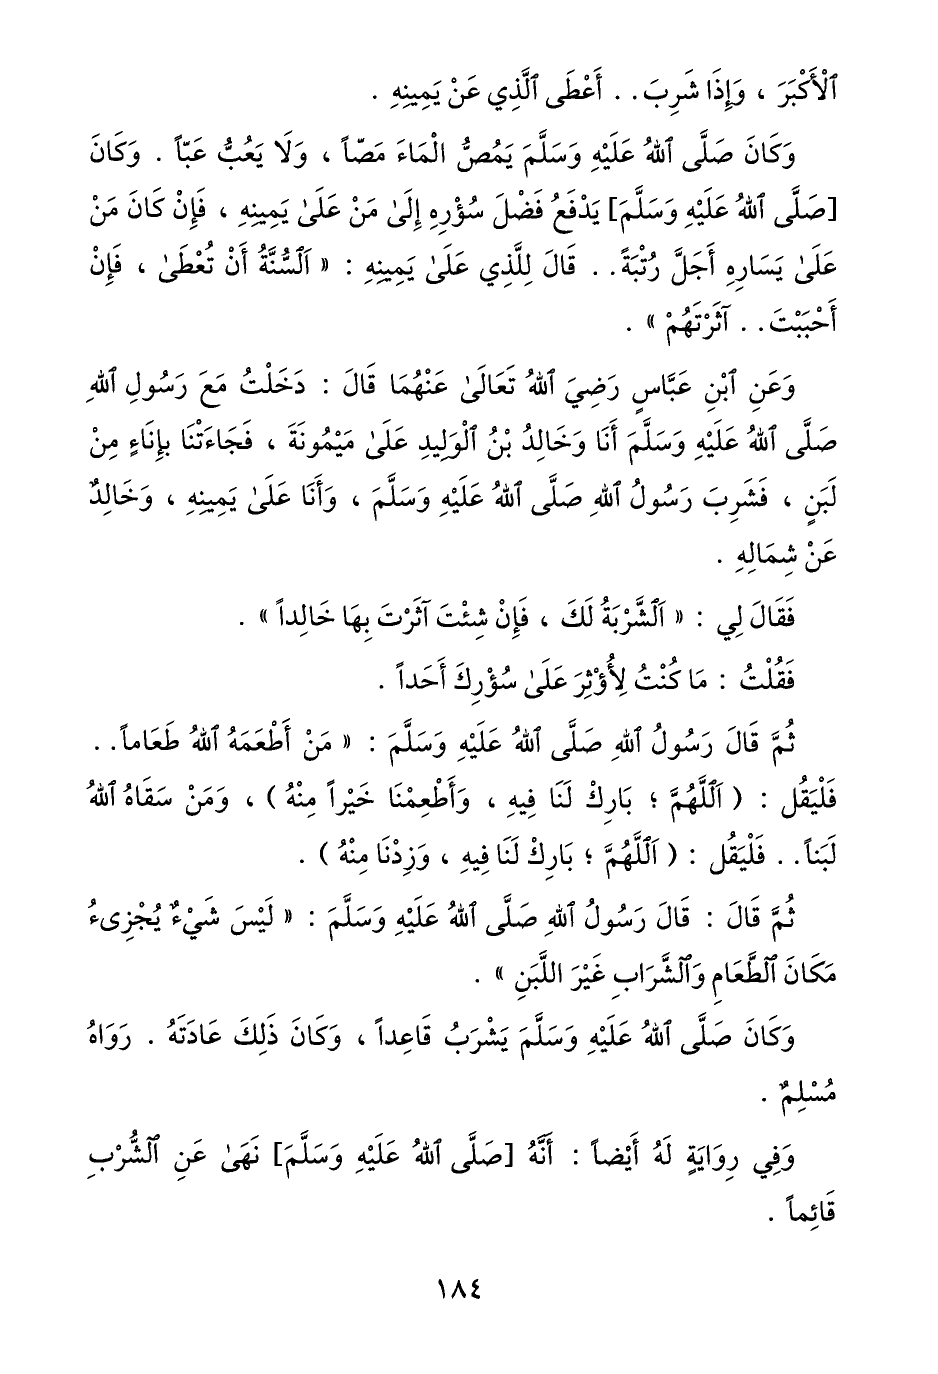 ٱلْأَكْبَرَ ، وَإِذَا شَرِبَ . . أَعْطَى ٱلَّذِي عَنْ يَمِينِهِ .
وَكَانَ صَلَّى ٱللهُ عَلَيْهِ وَسَلَّمَ يَمُصُّ الْمَاءَ مَصّاً ، وَلَا يَعُبُّ عَبّاً . وَكَانَ
[صَلَّى ٱللهُ عَلَيْهِ وَسَلَّمَ] يَدْفَعُ فَضْلَ سُؤْرِهِ إِلَىٰ مَنْ عَلَىٰ يَمِينِهِ ، فَإِنْ كَانَ مَنْ
عَلَىٰ يَسَارِهِ أَجَلَّ رُتْبَةً . . قَالَ لِلَّذِي عَلَىٰ يَمِينِهِ : « اَلسُّنَّةُ أَنْ تُعْطَىٰ ، فَإِنْ
أَحْبَبْتَ . . آثَرْتَهُمْ » .
وَعَنِ ٱبْنِ عَبَّاسٍ رَضِيَ ٱللهُ تَعَالَىٰ عَنْهُمَا قَالَ : دَخَلْتُ مَعَ رَسُولِ ٱللهِ
صَلَّى ٱللهُ عَلَيْهِ وَسَلَّمَ أَنَا وَخَالِدُ بْنُ ٱلْوَلِيدِ عَلَىٰ مَيْمُونَةَ ، فَجَاءَتْنَا بِإِنَاءٍ مِنْ
لَبَنٍ ، فَشَرِبَ رَسُولُ ٱللهِ صَلَّى ٱللهُ عَلَيْهِ وَسَلَّمَ ، وَأَنَا عَلَىٰ يَمِينِهِ ، وَخَالِدٌ
عَنْ شِمَالِهِ .
فَقَالَ لِي : « اَلشَّرْبَةُ لَكَ ، فَإِنْ شِئْتَ آثَرْتَ بِهَا خَالِداً » .
فَقُلْتُ : مَا كُنْتُ لِأُؤْثِرَ عَلَىٰ سُؤْرِكَ أَحَداً .
ثُمَّ قَالَ رَسُولُ ٱللهِ صَلَّى ٱللهُ عَلَيْهِ وَسَلَّمَ : « مَنْ أَطْعَمَهُ ٱللهُ طَعَاماً . .
فَلْيَقُل : ( اَللَّهُمَّ ؛ بَارِكْ لَنَا فِيهِ ، وَأَطْعِمْنَا خَيْراً مِنْهُ ) ، وَمَنْ سَقَاهُ ٱللهُ
لَبَناً . . فَلْيَقُل : ( اَللَّهُمَّ ؛ بَارِكْ لَنَا فِيهِ ، وَزِدْنَا مِنْهُ ) .
ثُمَّ قَالَ : قَالَ رَسُولُ ٱللهِ صَلَّى ٱللهُ عَلَيْهِ وَسَلَّمَ : « لَيْسَ شَيْءٌ يُجْزِىءُ
مَكَانَ ٱلطَّعَامِ وَٱلشَّرَابِ غَيْرَ اللَّبَنِ » .
وَكَانَ صَلَّى ٱللهُ عَلَيْهِ وَسَلَّمَ يَشْرَبُ قَاعِداً ، وَكَانَ ذَلِكَ عَادَتَهُ . رَوَاهُ
مُسْلِمٌ .
وَفِي رِوَايَةٍ لَهُ أَيْضاً : أَنَّهُ [صَلَّى ٱللهُ عَلَيْهِ وَسَلَّمَ] نَهَىٰ عَنِ ٱلشُّرْبِ
قَائِماً .
١٨٤